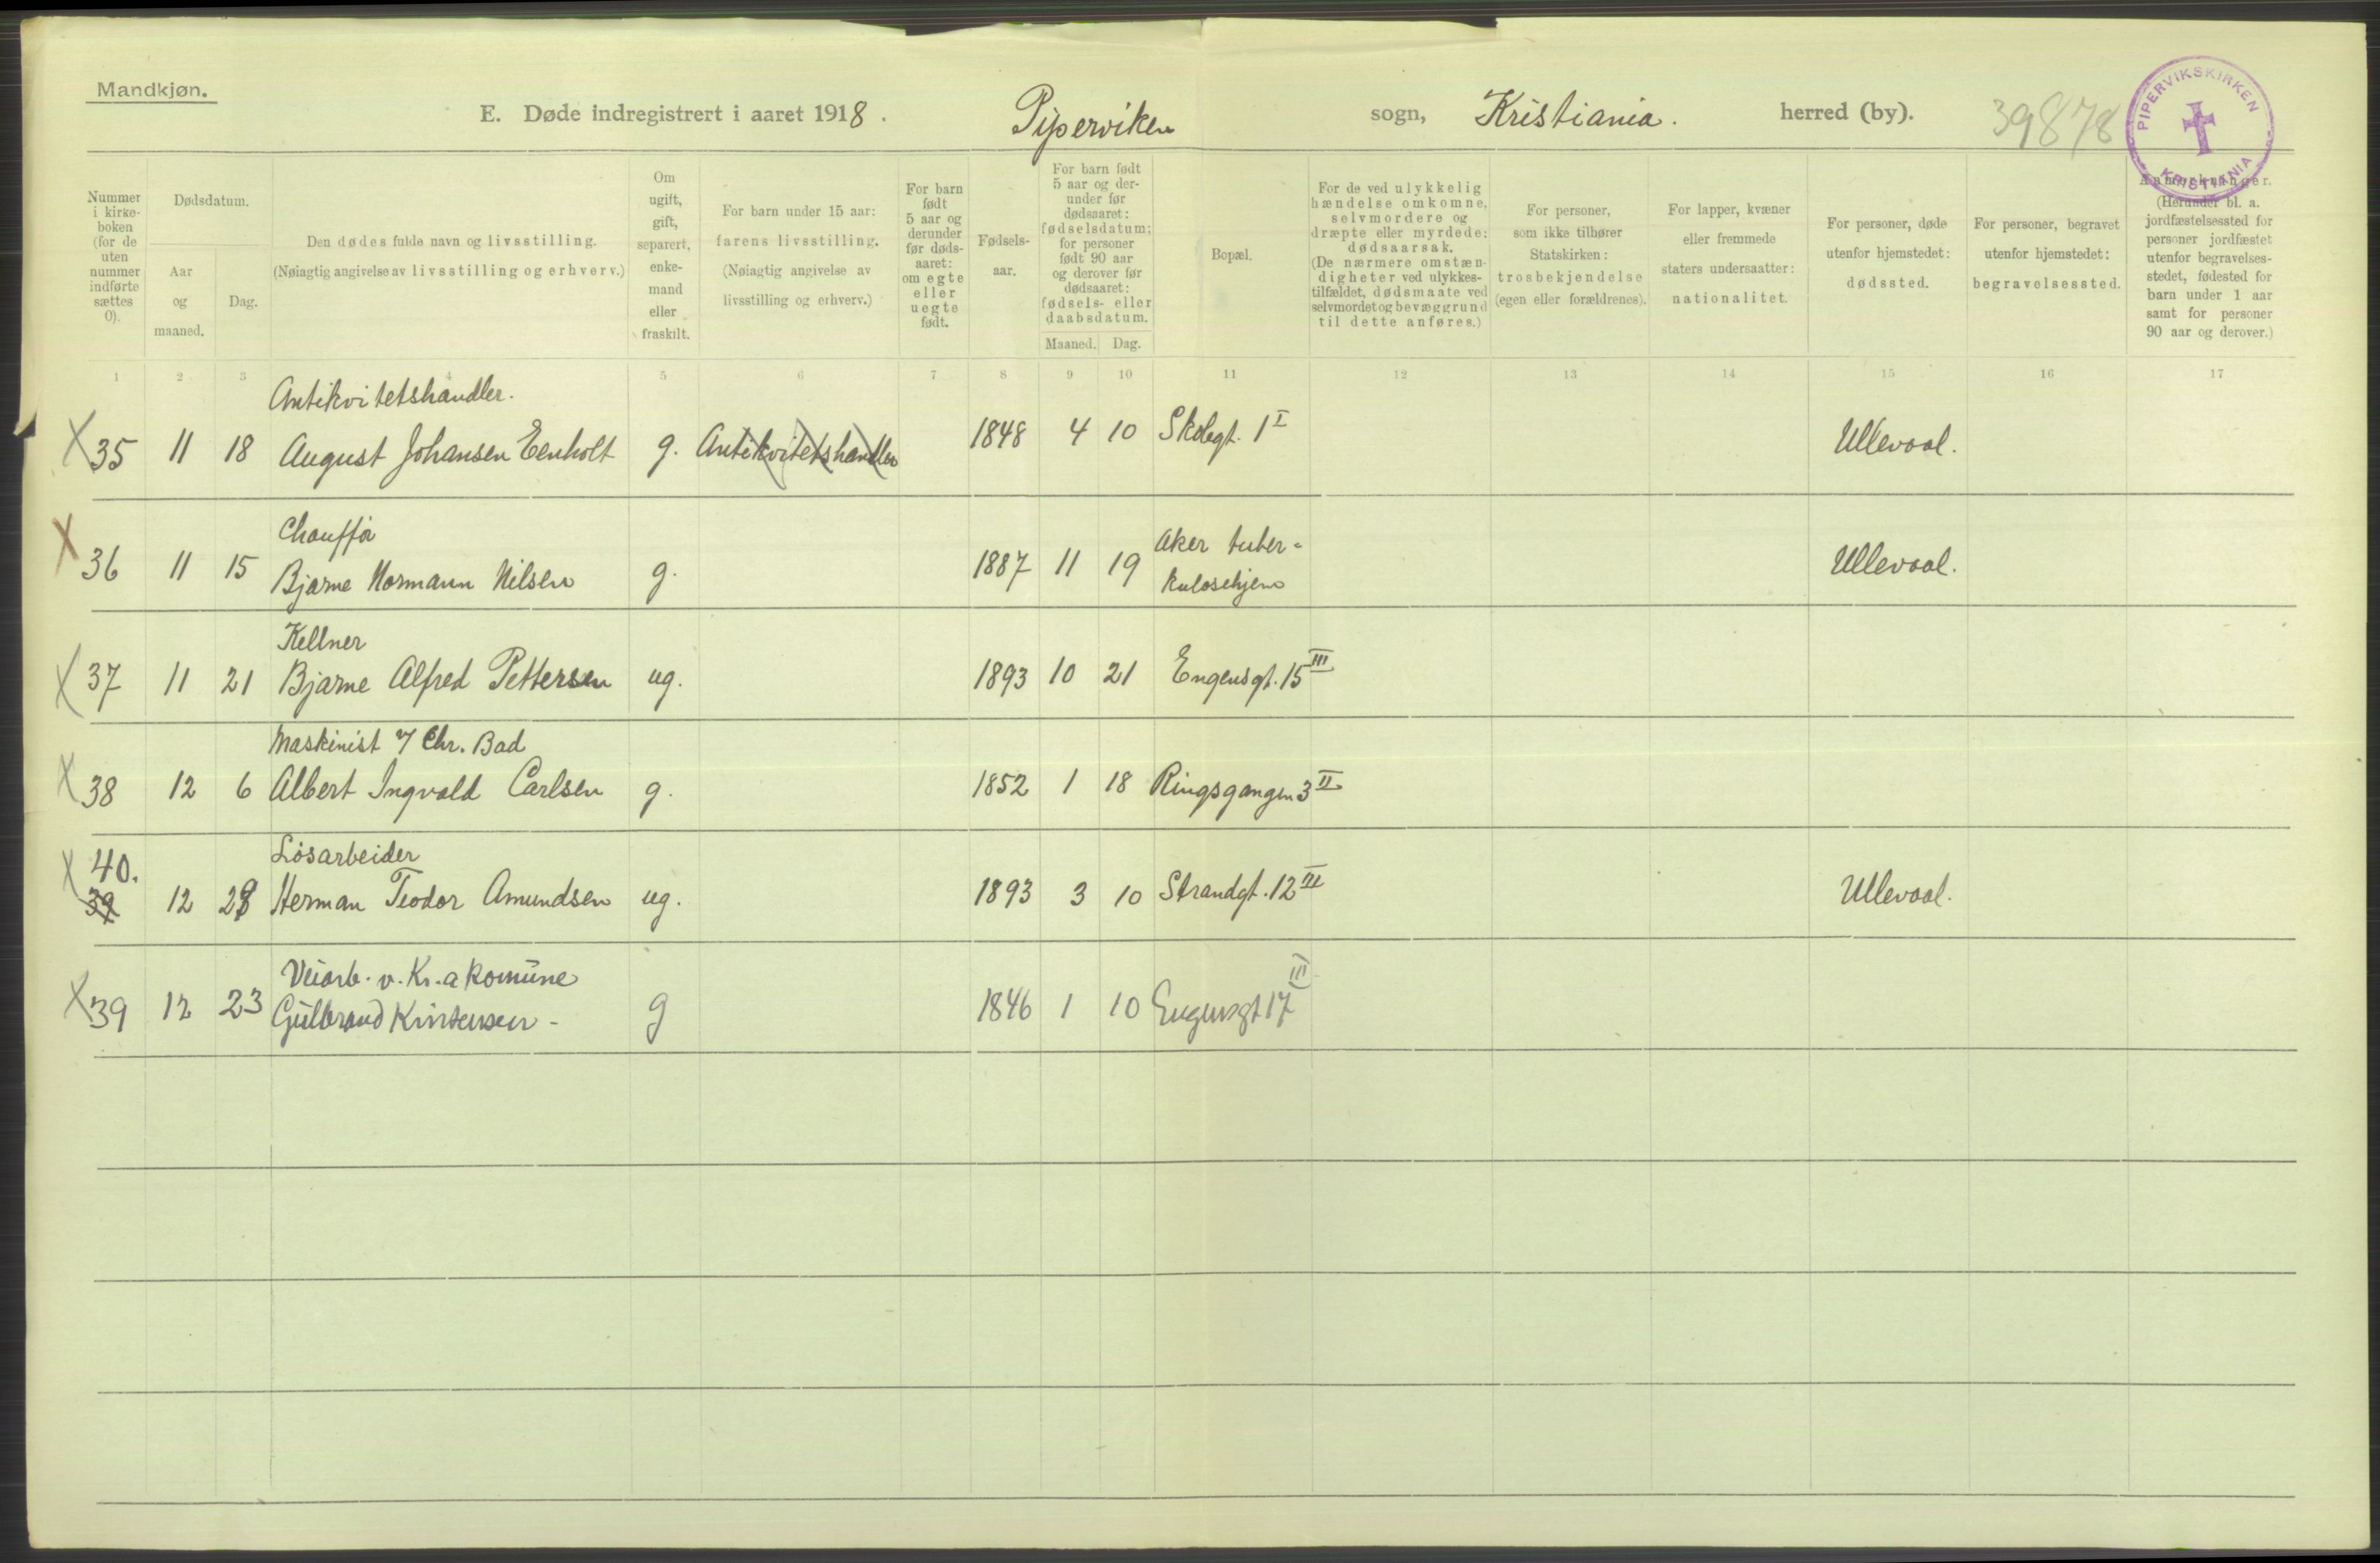 Mandkjøn.
E. Døde indregistrert i aaret 1918. Piperviken sogn, Kristiania. herred (by). 39878
PIPERVIKSKIRKEN KRISTIANIA
Nummer i kirke-boken (for de uten nummer indførte sættes 0).
Dødsdatum.
Aar og maaned.
Dag.
Den dødes fulde navn og livsstilling.
(Nøiagtig angivelse av livsstilling og erhverv.)
Om ugift, gift, separert, enke-mand eller fraskilt.
For barn under 15 aar: farens livsstilling.
(Nøiagtig angivelse av livsstilling og erhverv.)
For barn født 5 aar og derunder før døds-aaret: om egte eller uegte født.
Fødsels-aar.
For barn født 5 aar og der-under før dødsaaret: fødselsdatum; for personer født 90 aar og derover før dødsaaret: fødsels- eller daabsdatum.
Maaned. Dag.
Bopæl.
For de ved ulykkelig hændelse omkomne, selvmordere og dræpte eller myrdede: dødsaarsak.
(De nærmere omstæn-digheter ved ulykkes-tilfældet, dødsmaate ved selvmordet og bevæggrund til dette anføres.)
For personer, som ikke tilhører Statskirken: trosbekjendelse (egen eller forældrenes).
For lapper, kvæner eller fremmede staters undersaatter: nationalitet.
For personer, døde utenfor hjemstedet: dødssted.
For personer, begravet utenfor hjemstedet: begravelsessted.
Anmerkninger.
(Herunder bl. a. jordfæstelsessted for personer jordfæstet utenfor begravelses-stedet, fødested for barn under 1 aar samt for personer 90 aar og derover.)
1 2 3 4 5 6 7 8 9 10 11 12 13 14 15 16 17
Antikvitetshandler.
X 35 11 18 August Johansen Eenholt g. Antikvitetshandler 1848 4 10 Skolegt. 1 I Ullevaal.
Chauffør
X 36 11 15 Bjarne Normann Nilsen g. 1887 11 19 Aker tuber-
kulosehjem Ullevaal.
Kellner
X 37 11 21 Bjarne Alfred Pettersen ug. 1893 10 21 Engensgt. 15 III
Maskinist v/ Chr. Bad
X 38 12 6 Albert Ingvald Carlsen g. 1852 1 18 Ringsgangen 3 II
Løsarbeider
X 40. 39 12 28 Herman Teodor Amundsen ug. 1893 3 10 Strandgt. 12 III Ullevaal.
Veiarb. v. Kr.a Komune
X 39 12 23 Gulbrand Kristensen - g 1846 1 10 Engensgt 17 III